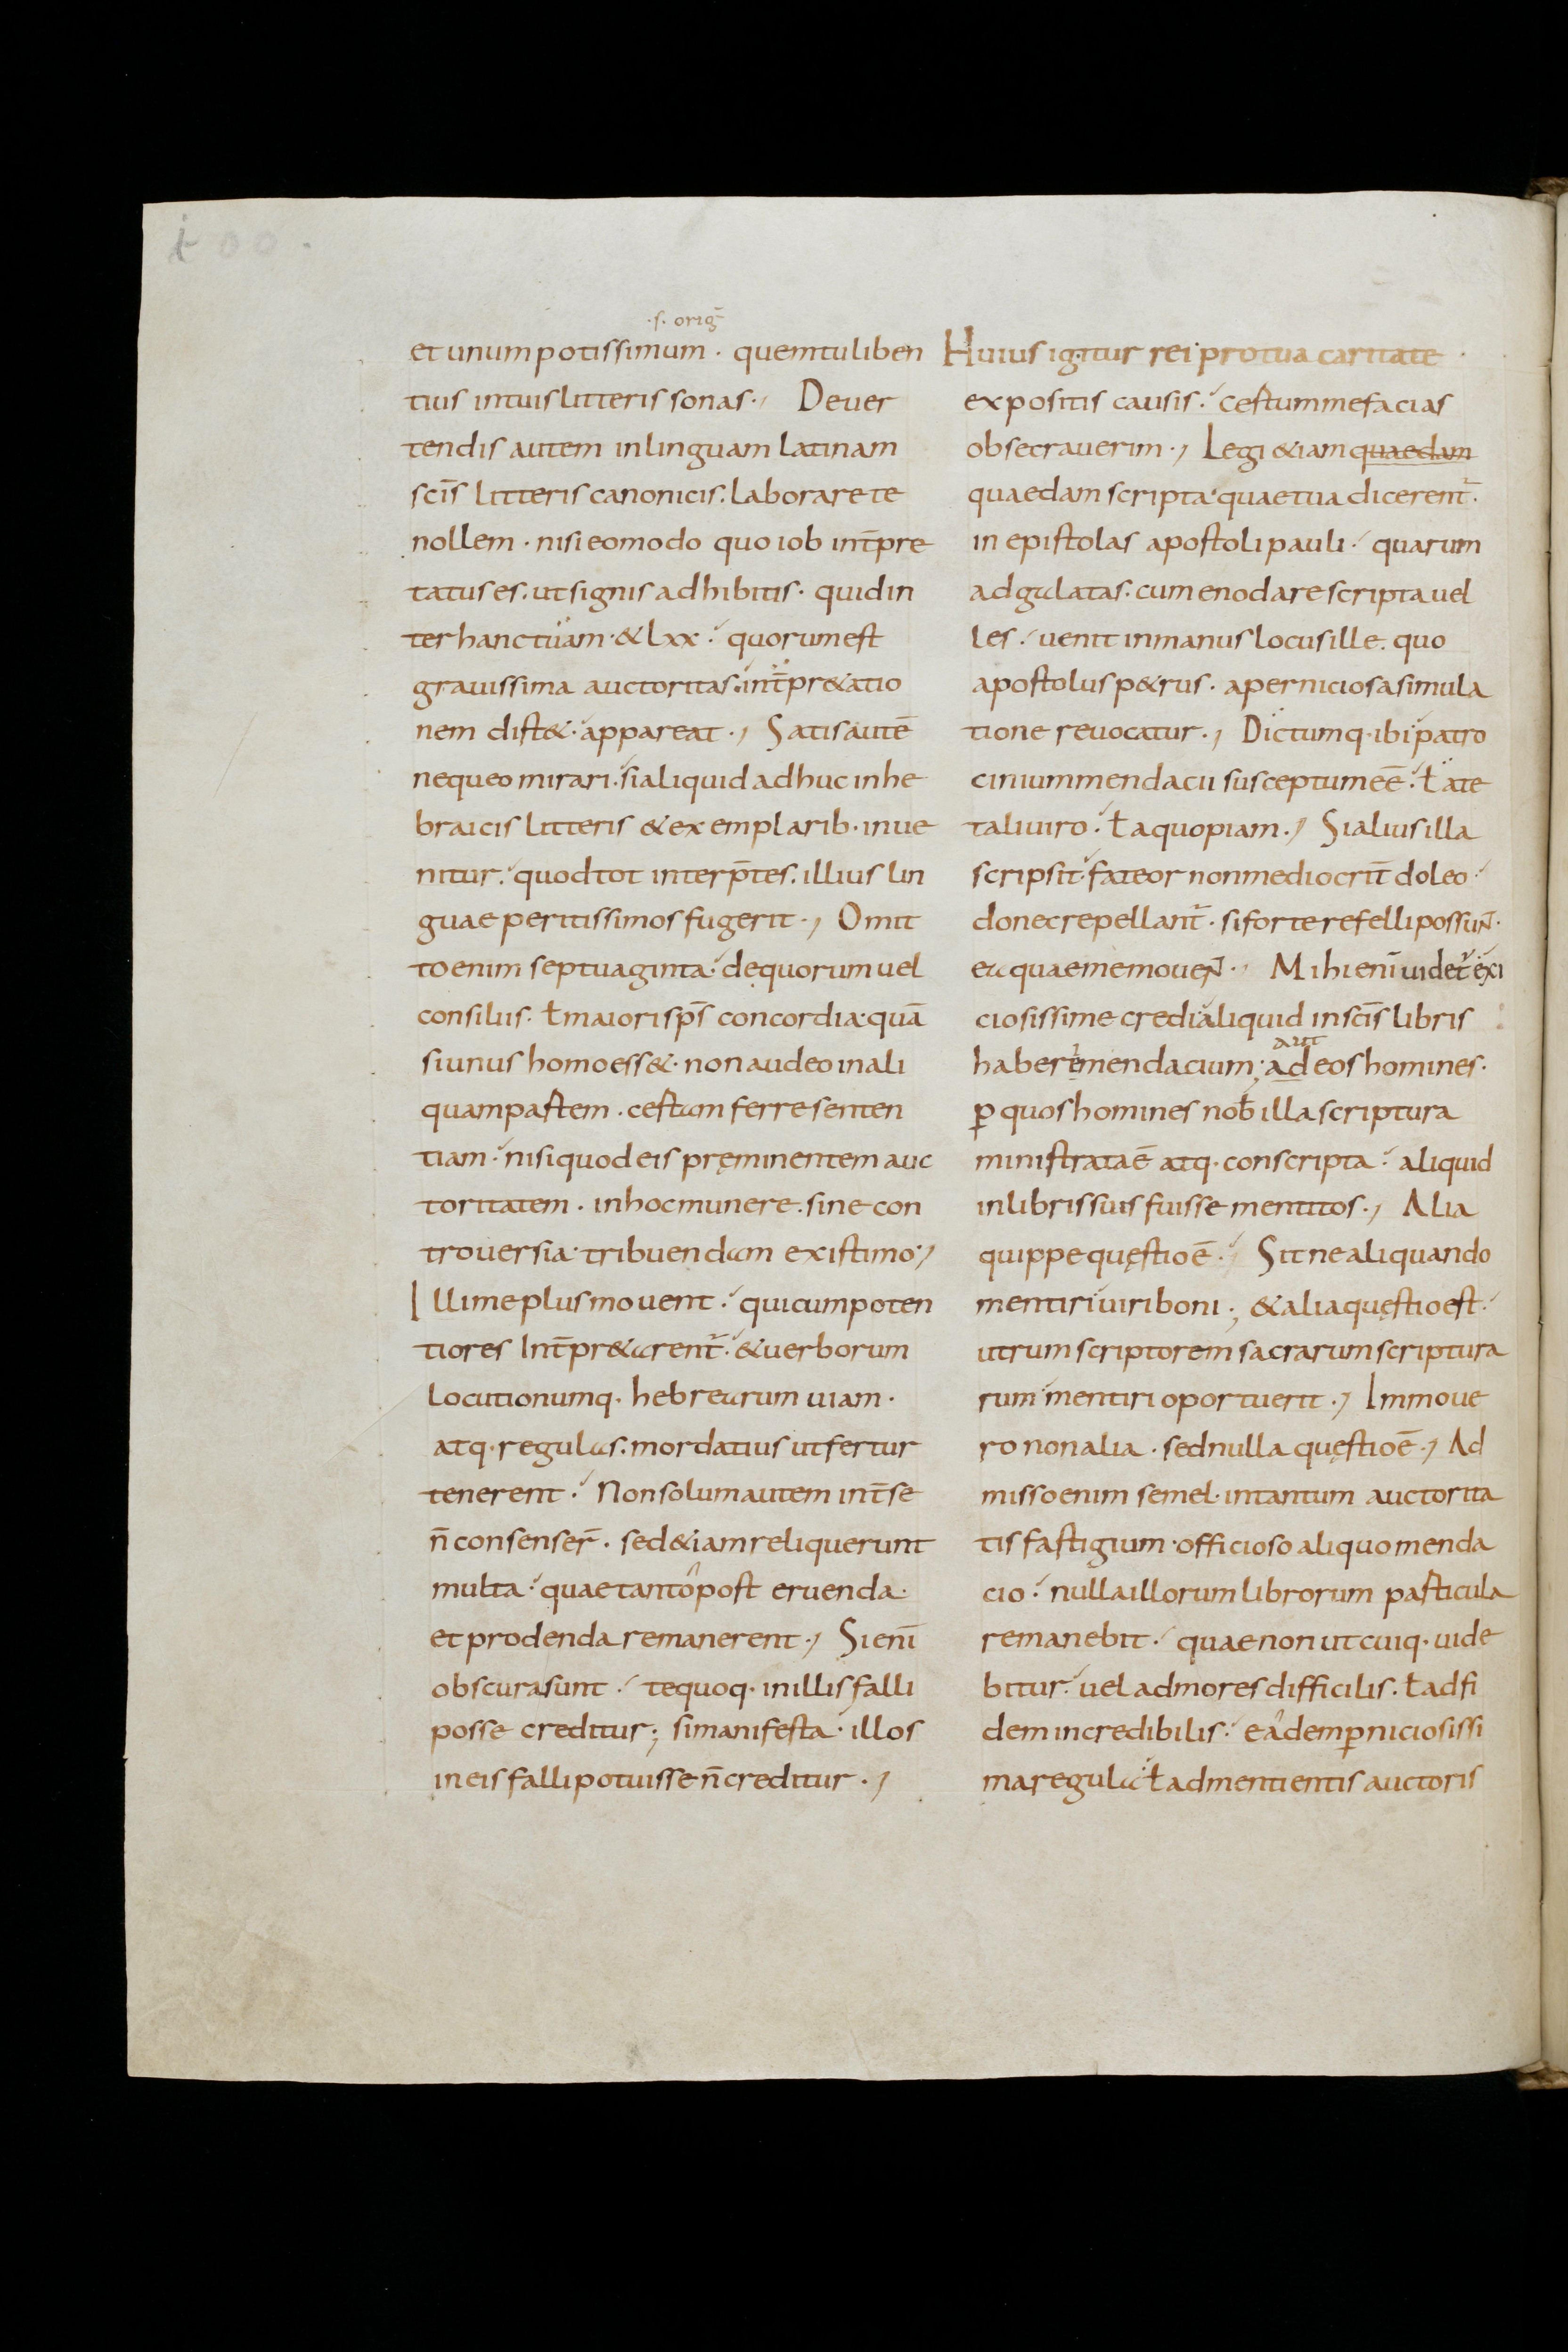 100.
·s· orig̅
et unum potissimum · quem tu liben
tius in tuis litteris sonas · De uer
tendis autem in linguam latinam
scīs litteris canonicis. laborare te
nollem · nisi eo modo quo iob int̄pre
tatus es. ut signis adhibitis · quid in
ter hanc tuam · & lxx · quorum est
grauissima auctoritas. int̄pr&atio
nem dist& · appareat · Satis autē
nequeo mirari · si aliquid adhuc in he
braicis litteris & exemplarib · inue
nitur · quod tot interp̄tes. illius lin
guae peritissimos fugerit · Omit
to enim septuaginta · de quorum uel
consiliis · ł maioris sp̄s concordia · quā
si unus homo ess& · non audeo in ali
quam partem · certam ferre senten
tiam · nisi quod eis pręminentem auc
toritatem · in hoc munere. sine con
trouersia · tribuendam existimo ·
Illi me plus mouent · qui cum poten
tiores Int̄pr&arent̄ · & uerborum
locutionumq · hebrearum uiam ·
atq · regulas. mordatius ut fertur
tenerent · Non solum autem int̄ se
n̄ consenser̄ · sed &iam reliquerunt
multa · quae tanto post eruenda ·
et prodenda remanerent · Si enī
obscura sunt · te quoq · in illis falli
posse creditur ; si manifesta · illos
in eis falli potuisse n̄ creditur ·
Huius igitur rei pro tua caritate
expositis causis · certum me facias
obsecrauerim · Legi &iam quaedam
quaedam scripta · quae tua dicerent̄ ·
in epistolas apostoli pauli · quarum
ad galatas · cum enodare scripta uel
les · uenit in manus locus ille · quo
apostolus p&rus · a perniciosa simula
tione reuocatur · Dictumq · ibi patro
cinium mendacii susceptum eē · ł a te
tali uiro · ł a quopiam · Si alius illa
scripsit · fateor non mediocrit̄ doleo ·
donec repellant̄ · si forte refelli possunt ·
ea quae me mouent · Mihi enī uidet̄ exi
ciosissime credi aliquid in scīs libris
aut
habere mendacium ; ad eos homines ·
ꝑ quos homines nob̄ illa scriptura
ministrata ē atq · conscripta · aliquid
in libris suis fuisse mentitos · Alia
quippe quęstio ē · Sit ne aliquando
mentiri uiri boni ; & alia quęstio est ·
utrum scriptorem sacrarum scriptura
rum mentiri oportuerit · Immo ue
ro non alia · sed nulla quęstio ē · Ad
misso enim semel · in tantum auctorita
tis fastigium · officioso aliquo menda
cio · nulla illorum librorum particula
remanebit · quae non ut cuiq · uide
bitur · uel ad mores difficilis. ł ad fi
dem incredibilis · eadem ꝑniciosissi
ma regula ł ad mentientis auctoris